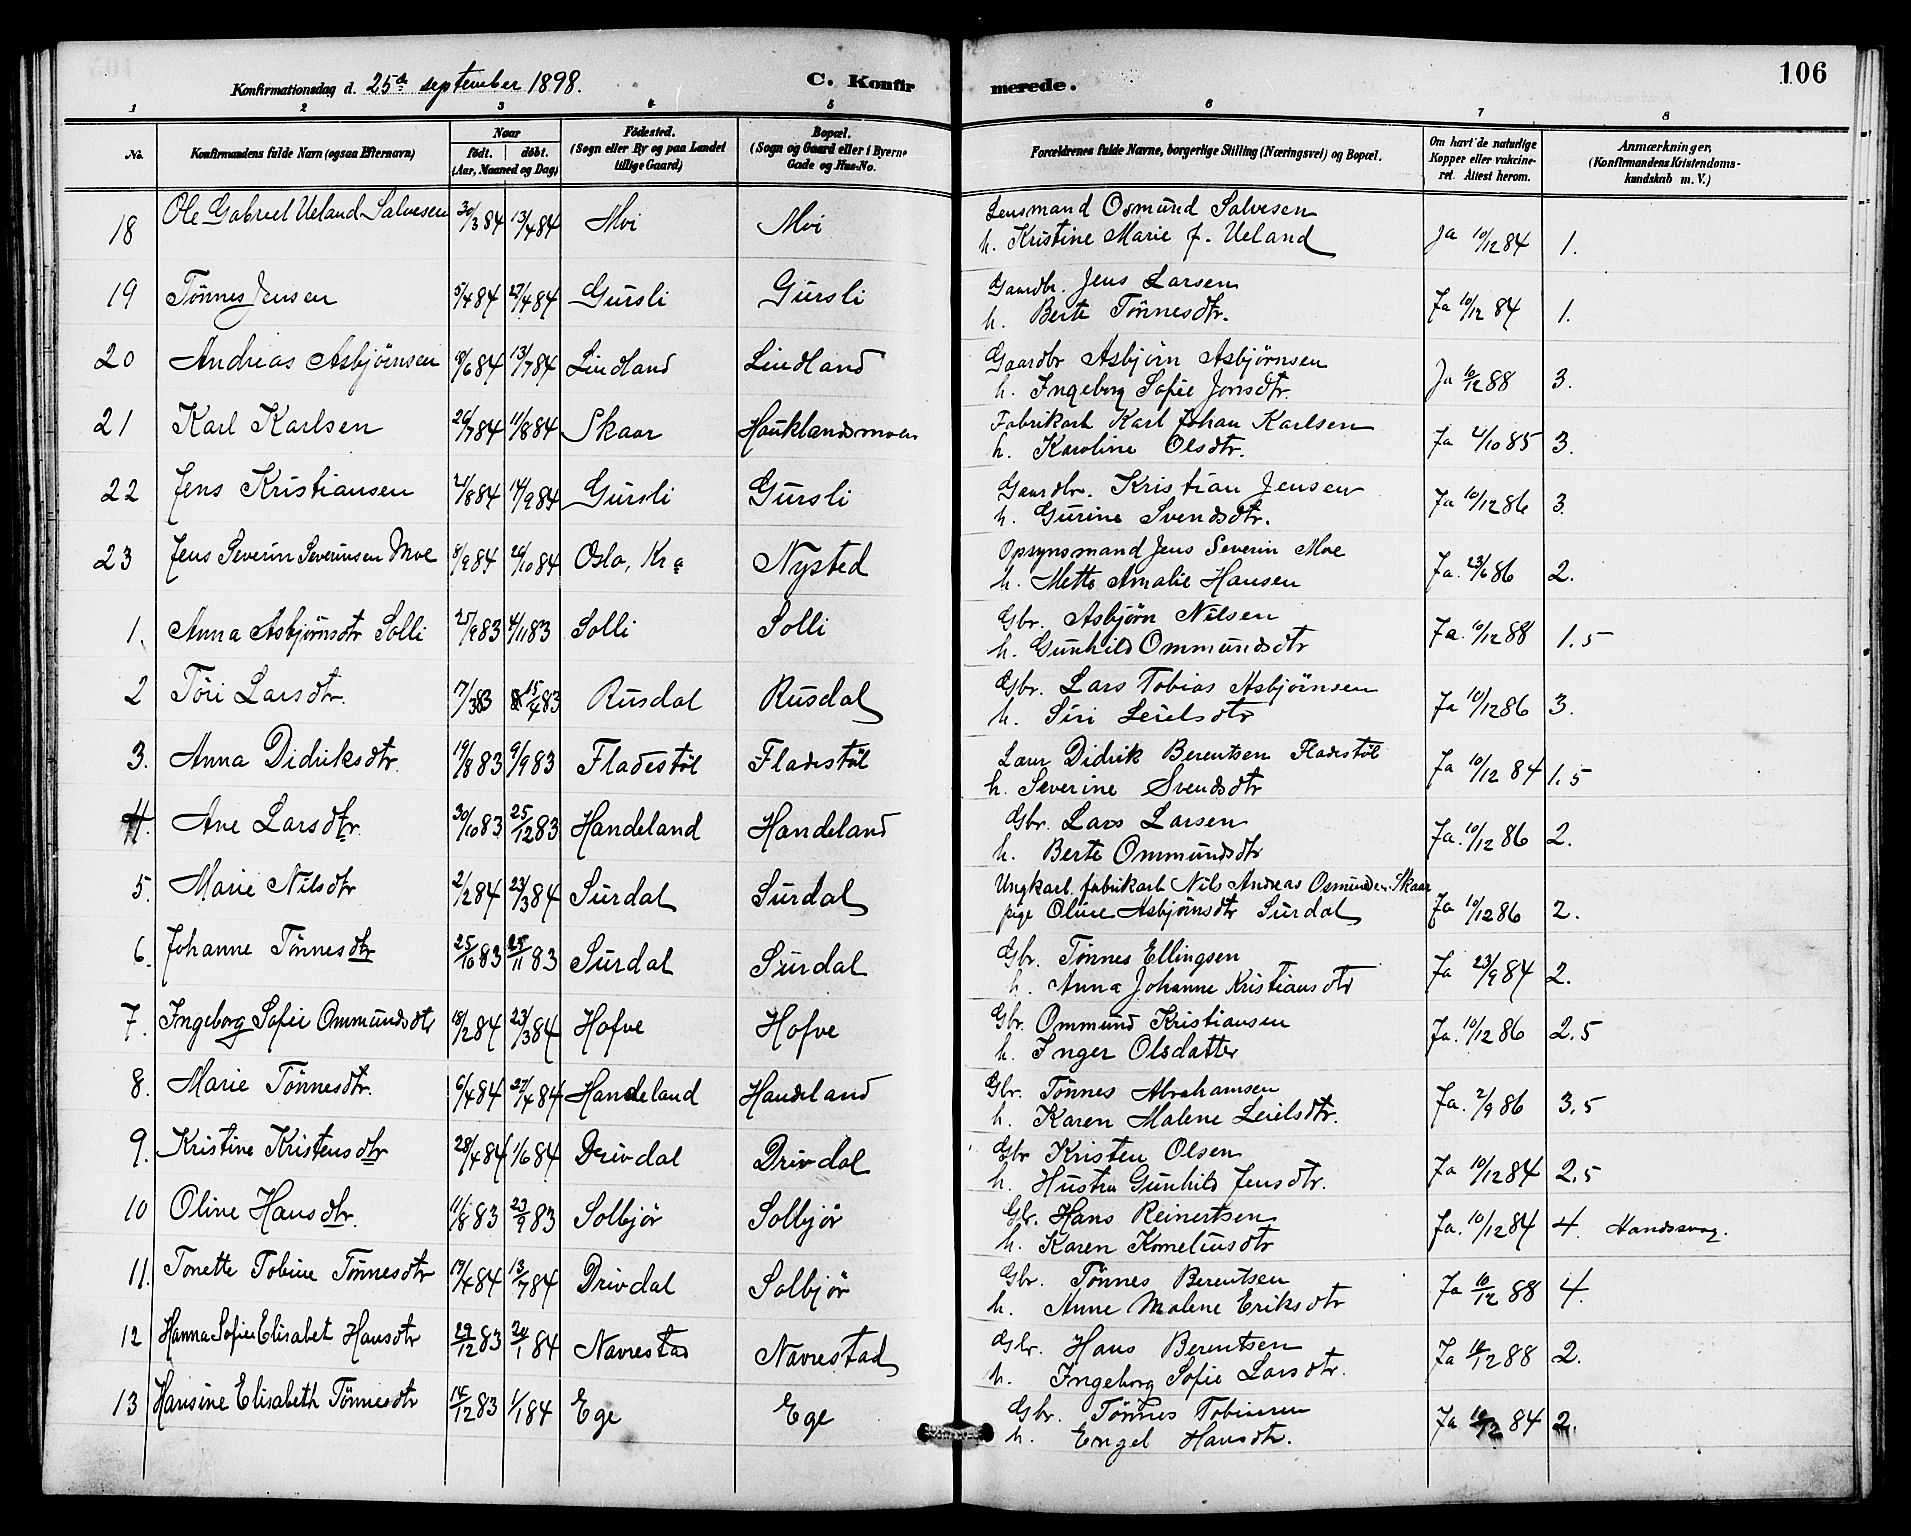 106
Konfirmationsdag d. 25de september 1898. C. Konfirmerede.
1 2 3 4 5 6 7 8
No. Konfirmandens fulde Navn (ogsaa Efternavn) Naar født. døbt. (Aar, Maaned og Dag) Fødested. (Sogn eller By og paa Landet tillige Gaard) Bopæl. (Sogn og Gaard eller i Byerne Gade og Hus-No. Forældrenes fulde Navne, borgerlige Stilling (Næringsvei) og Bopæl. Om havt de naturlige Kopper eller vakcineret. Attest herom. Anmærkninger. (Konfirmandens Kristendomskundskab m. V.)
18 Ole Gabriel Ueland Salvesen 30/3 84 13/4 84 Moi Moi Lensmand Osmund Salvesen Ja 10/12 84 1.
h. Kristine Marie f. Ueland
19 Tønnes Jensen 5/4 84 27/4 84 Gursli Gursli Gaardbr. Jens Larsen Ja 10/12 84 1.
h. Berte Tønnesdtr.
20 Andreas Asbjørnsen 18/6 84 13/7 84 Lindland Lindland Gaardbr Asbjørn Asbjørnsen Ja 10/12 88 3.
h. Ingeborg Sofie Jonsdtr.
21 Karl Karlsen 26/7 84 11/8 84 Skaar Hauklandsmoen Fabrikarb Karl Johan Karlsen Ja 4/10 85 3.
h. Karoline Olsdtr.
22 Jens Kristiansen 2/8 84 14/9 84 Gursli Gursli Gaardbr. Kristian Jensen Ja 10/12 86 3.
h. Gurine Svendsdtr.
23 Jens Severin Severinsen Moe 8/9 84 26/10 84 Oslo, Kra Nysted Opsynsmand Jens Severin Moe Ja. 23/6 86 2.
h. Mette Amalie Hansen
1. Anna Asbjørnsdtr Solli 25/9 83 4/11 83 Solli Solli Gbr. Asbjørn Nilsen Ja. 10/12 88 1.5
h. Gunhild Ommundsdtr
2 Tori Larsdtr. 17/3 83 15/4 83 Rusdal Rusdal Gbr. Lars Tobias Asbjørnsen Ja 10/12 86 3.
h. Siri Leielsdtr
3. Anna Didriksdtr. 19/8 83 9/9 83 Fladestøl Fladestøl Lær Didrik Berentsen Fladestøl Ja 10/12 84 1.5
h. Severine Svendsdtr
4. Ane Larsdtr. 30/10 83 25/12 83 Handeland Handeland Gbr. Lars Larsen Ja. 10/12 86 2.
h. Berte Ommundsdtr
5. Marie Nilsdtr 2/2 84 23/3 84 Surdal Surdal Ungkarl, fabrikarb Nils Andreas Osmundsen Skaar Ja 10/12 86 2.
pige Oline Asbjørnsdtr Surdal
6. Johanne Tønnesdtr 25/10 83 25/11 83 Surdal Surdal Gbr. Tønnes Ellingsen Ja 23/9 84 2.
h. Anna Johanne Kristiansdtr
7. Ingeborg Sofie Ommundsdtr 18/2 84 23/3 84 Hofve Hofve Gbr. Ommund Kristiansen Ja. 10/12 86 2.5
h. Inger Olsdatter
8. Marie Tønnesdtr. 6/4 84 27/4 84 Handeland Handeland Gbr. Tønnes Abrahamsen Ja. 2/9 86 3.5
h. Karen Malene Leielsdtr.
9. Kristine Kristensdtr 28/4 84 1/6 84 Drivdal Drivdal Gbr Kristen Olsen Ja 10/12 84 2.5
h. Hustru Gunhild Jensdtr.
10 Oline Hansdtr. 11/8 83 23/9 83 Solbjør Solbjør Gbr. Hans Reinertsen Ja. 10/12 84 4. Aandssvag.
h. Karen Korneliusdtr
11. Tonette Tobine Tønnesdtr 19/4 84 13/7 84 Drivdal Solbjør Gbr. Tønnes Berentsen Ja 10/12 88 4.
h. Anne Malene Eriksdtr
12 Hanna Sofie Elisabet Hansdtr 29/12 83 20/1 84 Navrestad Navrestad Gbr. Hans Berentsen Ja 10/12 88 2.
h. Ingeborg Sofie Larsdtr.
13 Hansine Elisabeth Tønnesdtr 14/12 83 1/1 84 Ege Ege Gbr. Tønnes Tobiasen Ja 10/12 84 2.
h. Engel Hansdtr.